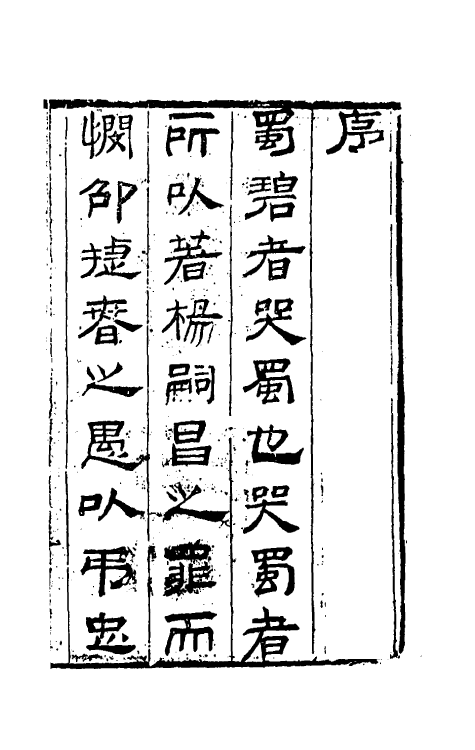 序
蜀碧者哭蜀也哭蜀者
所㕥著楊嗣昌之罪而
憫邵捷春之愚㕥弔忠